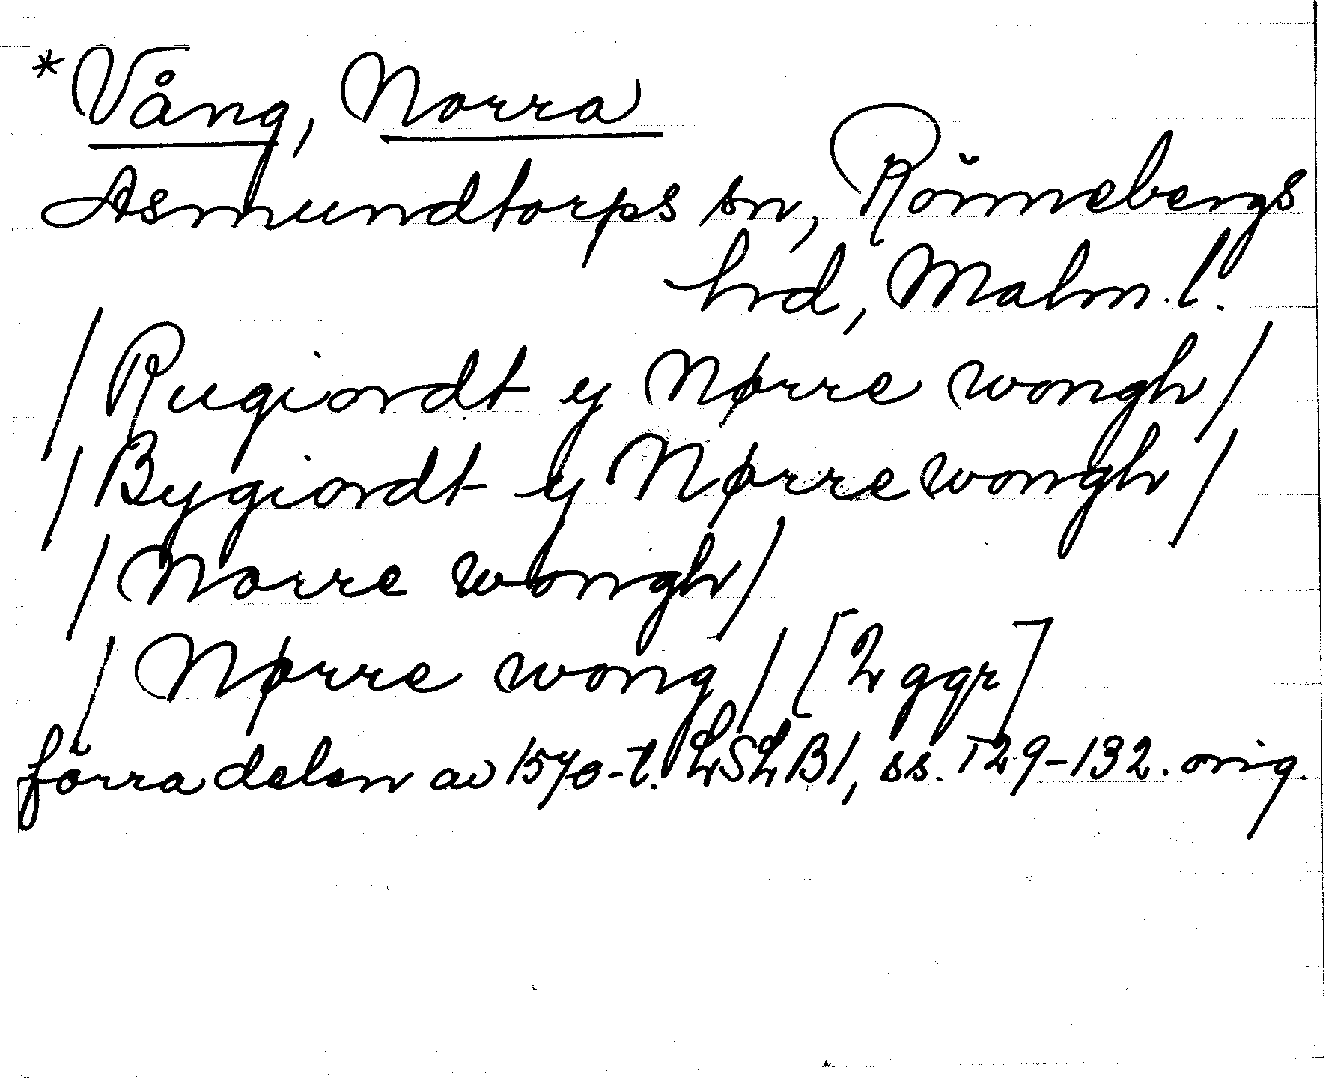 *Vång, Norra
Asmundtorps sn, Rönnebergs
hrd, Malm. l.
/Rugiordt y Nørre wongh/
/Bygiordt y Nørre wongh/
/Norre wongh/
/Nørre wong/ [2 ggr]
förra delen av 1570-t. LSLB1, ss. 129-132. orig.